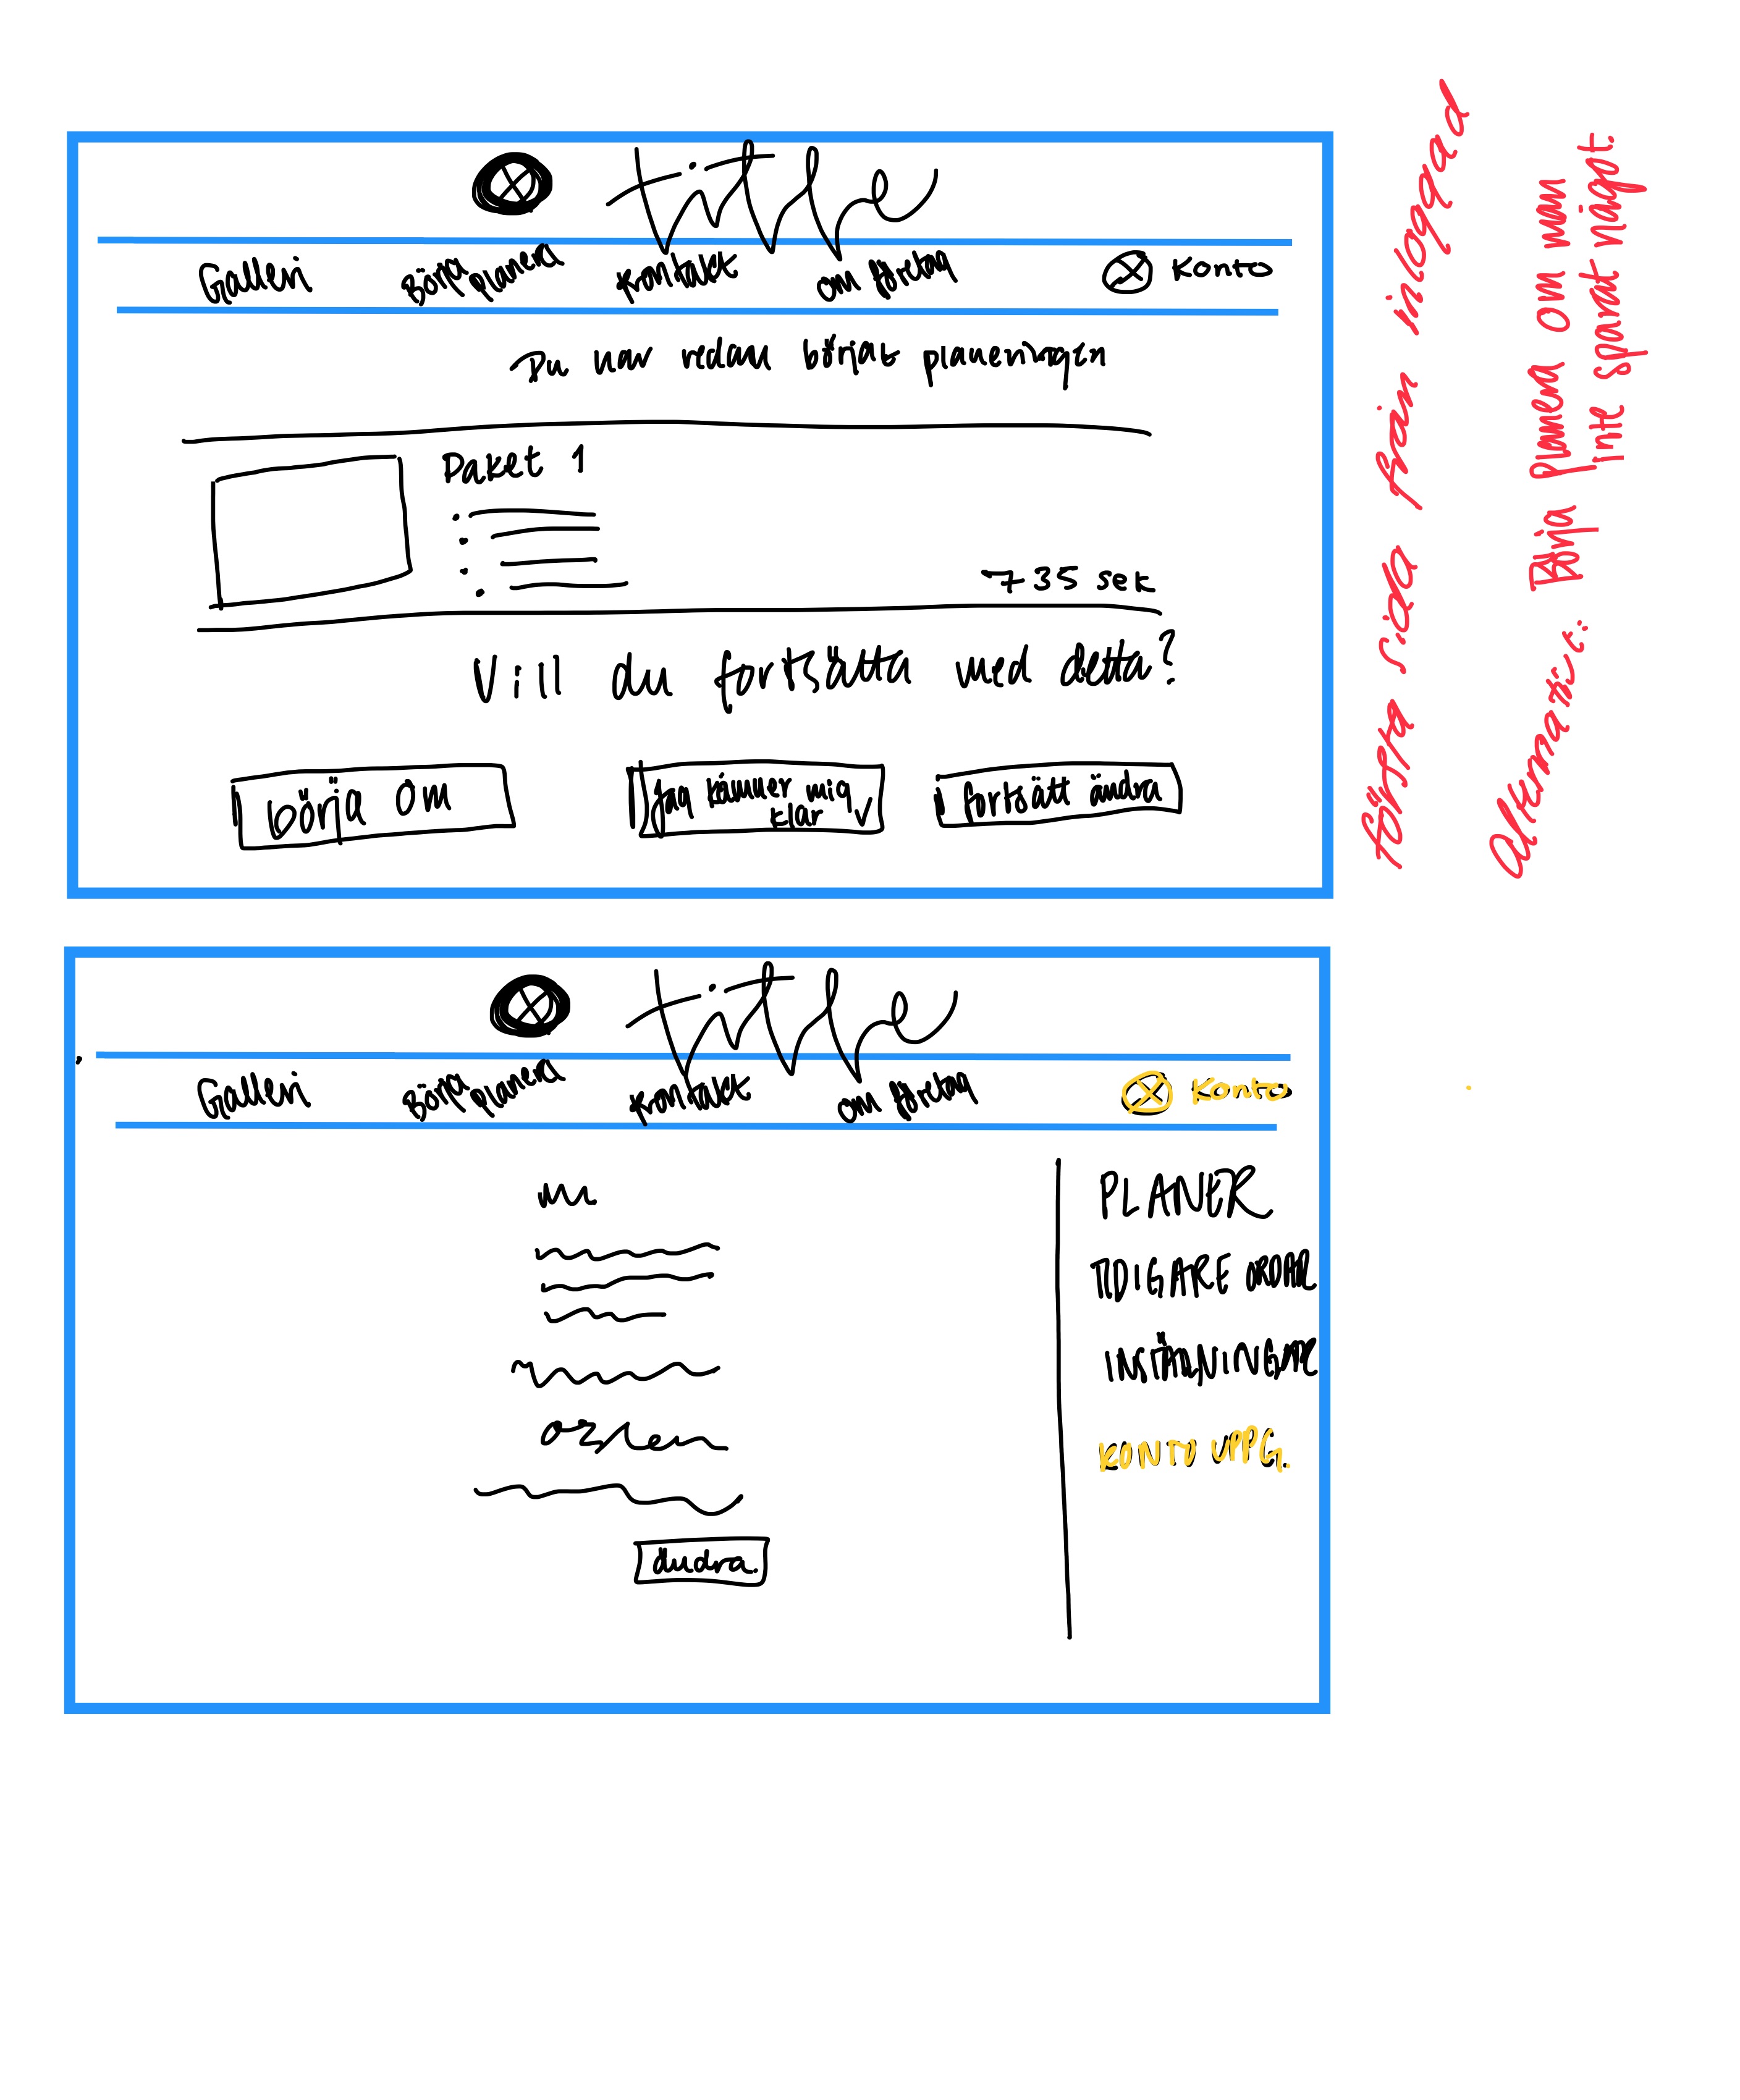 title
Galleri Börja planera Kontakt om företag Konto
Du har redan börjat planeringen
Paket 1
735 sek
Vill du fortsätta med detta?
börja om
Jag känner mig
klar ✓
fortsätt ändra
första sida från inloggad
Alternativ: Börja planera om man
inte sparat något.
title
Galleri Börja planera Kontakt om företag Konto
PLANER
TIDIGARE ORDRAR
INSTÄLLNINGAR
KONTO UPPG.
ändra.